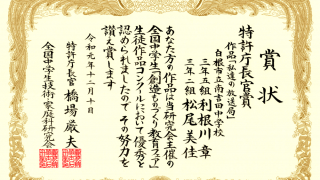 賞状
特許庁長官賞
作品「私達の放送局」
白根市立南吉田中学校
三年五組 利根川 章
三年二組 松尾 美佳
あなた方の作品は当研究会主催の
全国中学生「創造ものづくり教育フェア」
生徒作品コンクールにおいて優秀と
認められましたのでその努力を
讃え賞します
令和元年十二月十日
特許庁長官 橋場 厳夫
全国中学生技術・家庭科研究会